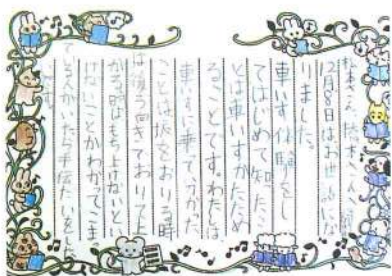 松本さん 橋本さんへ
12月8日はお世話にな
りました。
車いす体験をし
てはじめて知ったこ
とは車いすがたため
ることです。わたしは
車いすに乗って分かった
ことは坂をおりる時
は後ろ向きでおりて上
がる時はもち上げないとい
けないことがわかってこま
っている人がいたら手伝いたいと